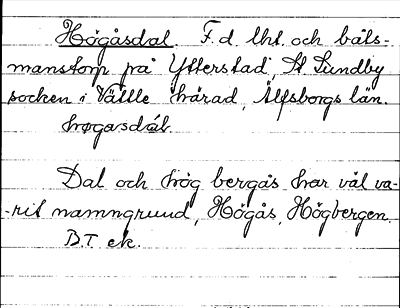 Högåsdal F.d. lht och båts-
manstorp på Ytterstad, St. Lundby
socken i Vättle härad, Älfsborgs län.
högasdál.
Dal och hög bergås har väl va-
-rit namngrund, Högås, Högbergen.
B.T. ek.